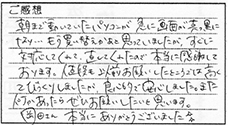 ご感想
朝まで動いていたパソコンが 急に画面が真黒に
なり…もう買い替えかなと思っていましたが、すぐに
対応してくれて、直してくれたので本当に感謝して
おります。以前お願いしたところは高く
てびっくりしましたが、良心的で安心しました。また
何かあったらぜひお願いしたいと思います。
岡田さん 本当にありがとうございました